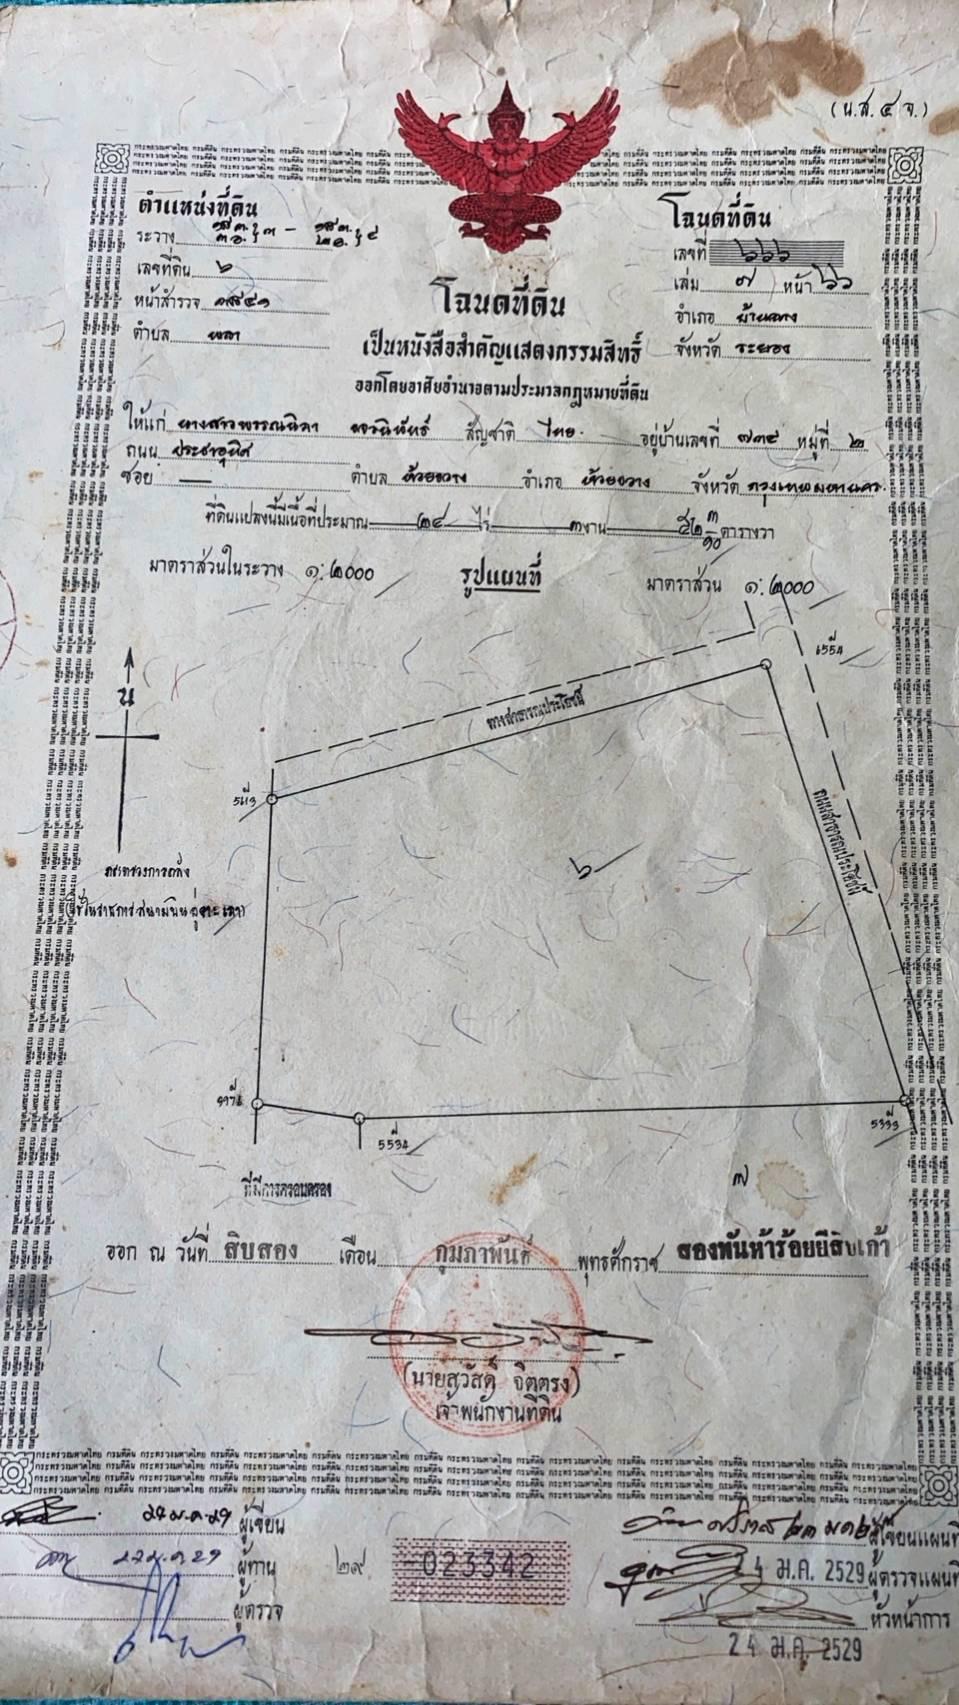 (น.ส.๔ จ.)
ตำแหน่งที่ดิน
ระวาง
เลขที่ดิน ๖
หน้าสำรวจ
ตำบล พลา
โฉนดที่ดิน
เลขที่ ๖๖๖
เล่ม ๗ หน้า ๖๖
อำเภอ บ้านฉาง
จังหวัด ระยอง
โฉนดที่ดิน
เป็นหนังสือสำคัญแสดงกรรมสิทธิ์
ออกโดยอาศัยอำนาจตามประมวลกฎหมายที่ดิน
ให้แก่ นางสาวพรรณนิภา สัญชาติ ไทย อยู่บ้านเลขที่ ๗๓๔ หมู่ที่ ๒
ถนน ประชาอุทิศ
ซอย — ตำบล ห้วยขวาง อำเภอ ห้วยขวาง จังหวัด กรุงเทพมหานคร
ที่ดินแปลงนี้มีเนื้อที่ประมาณ ๒๔ ไร่ ๓ งาน ๕๒ ๓/๑๐ ตารางวา
มาตราส่วนในระวาง ๑:๒๐๐๐ รูปแผนที่ มาตราส่วน ๑:๒๐๐๐
น
ทางสาธารณประโยชน์
ถนนสาธารณประโยชน์
๖
กระทรวงการคลัง
ที่มีการครอบครอง
๗
ออก ณ วันที่ สิบสอง เดือน กุมภาพันธ์ พุทธศักราช สองพันห้าร้อยยี่สิบเก้า
(นายสุวัสดิ์ จิตตรง)
เจ้าพนักงานที่ดิน
ผู้เขียน
ผู้ทาน
ผู้ตรวจ
๒๙ 023342
ผู้เขียนแผนที่
24 ม.ค. 2529 ผู้ตรวจแผนที่
หัวหน้าการ
24 ม.ค. 2529